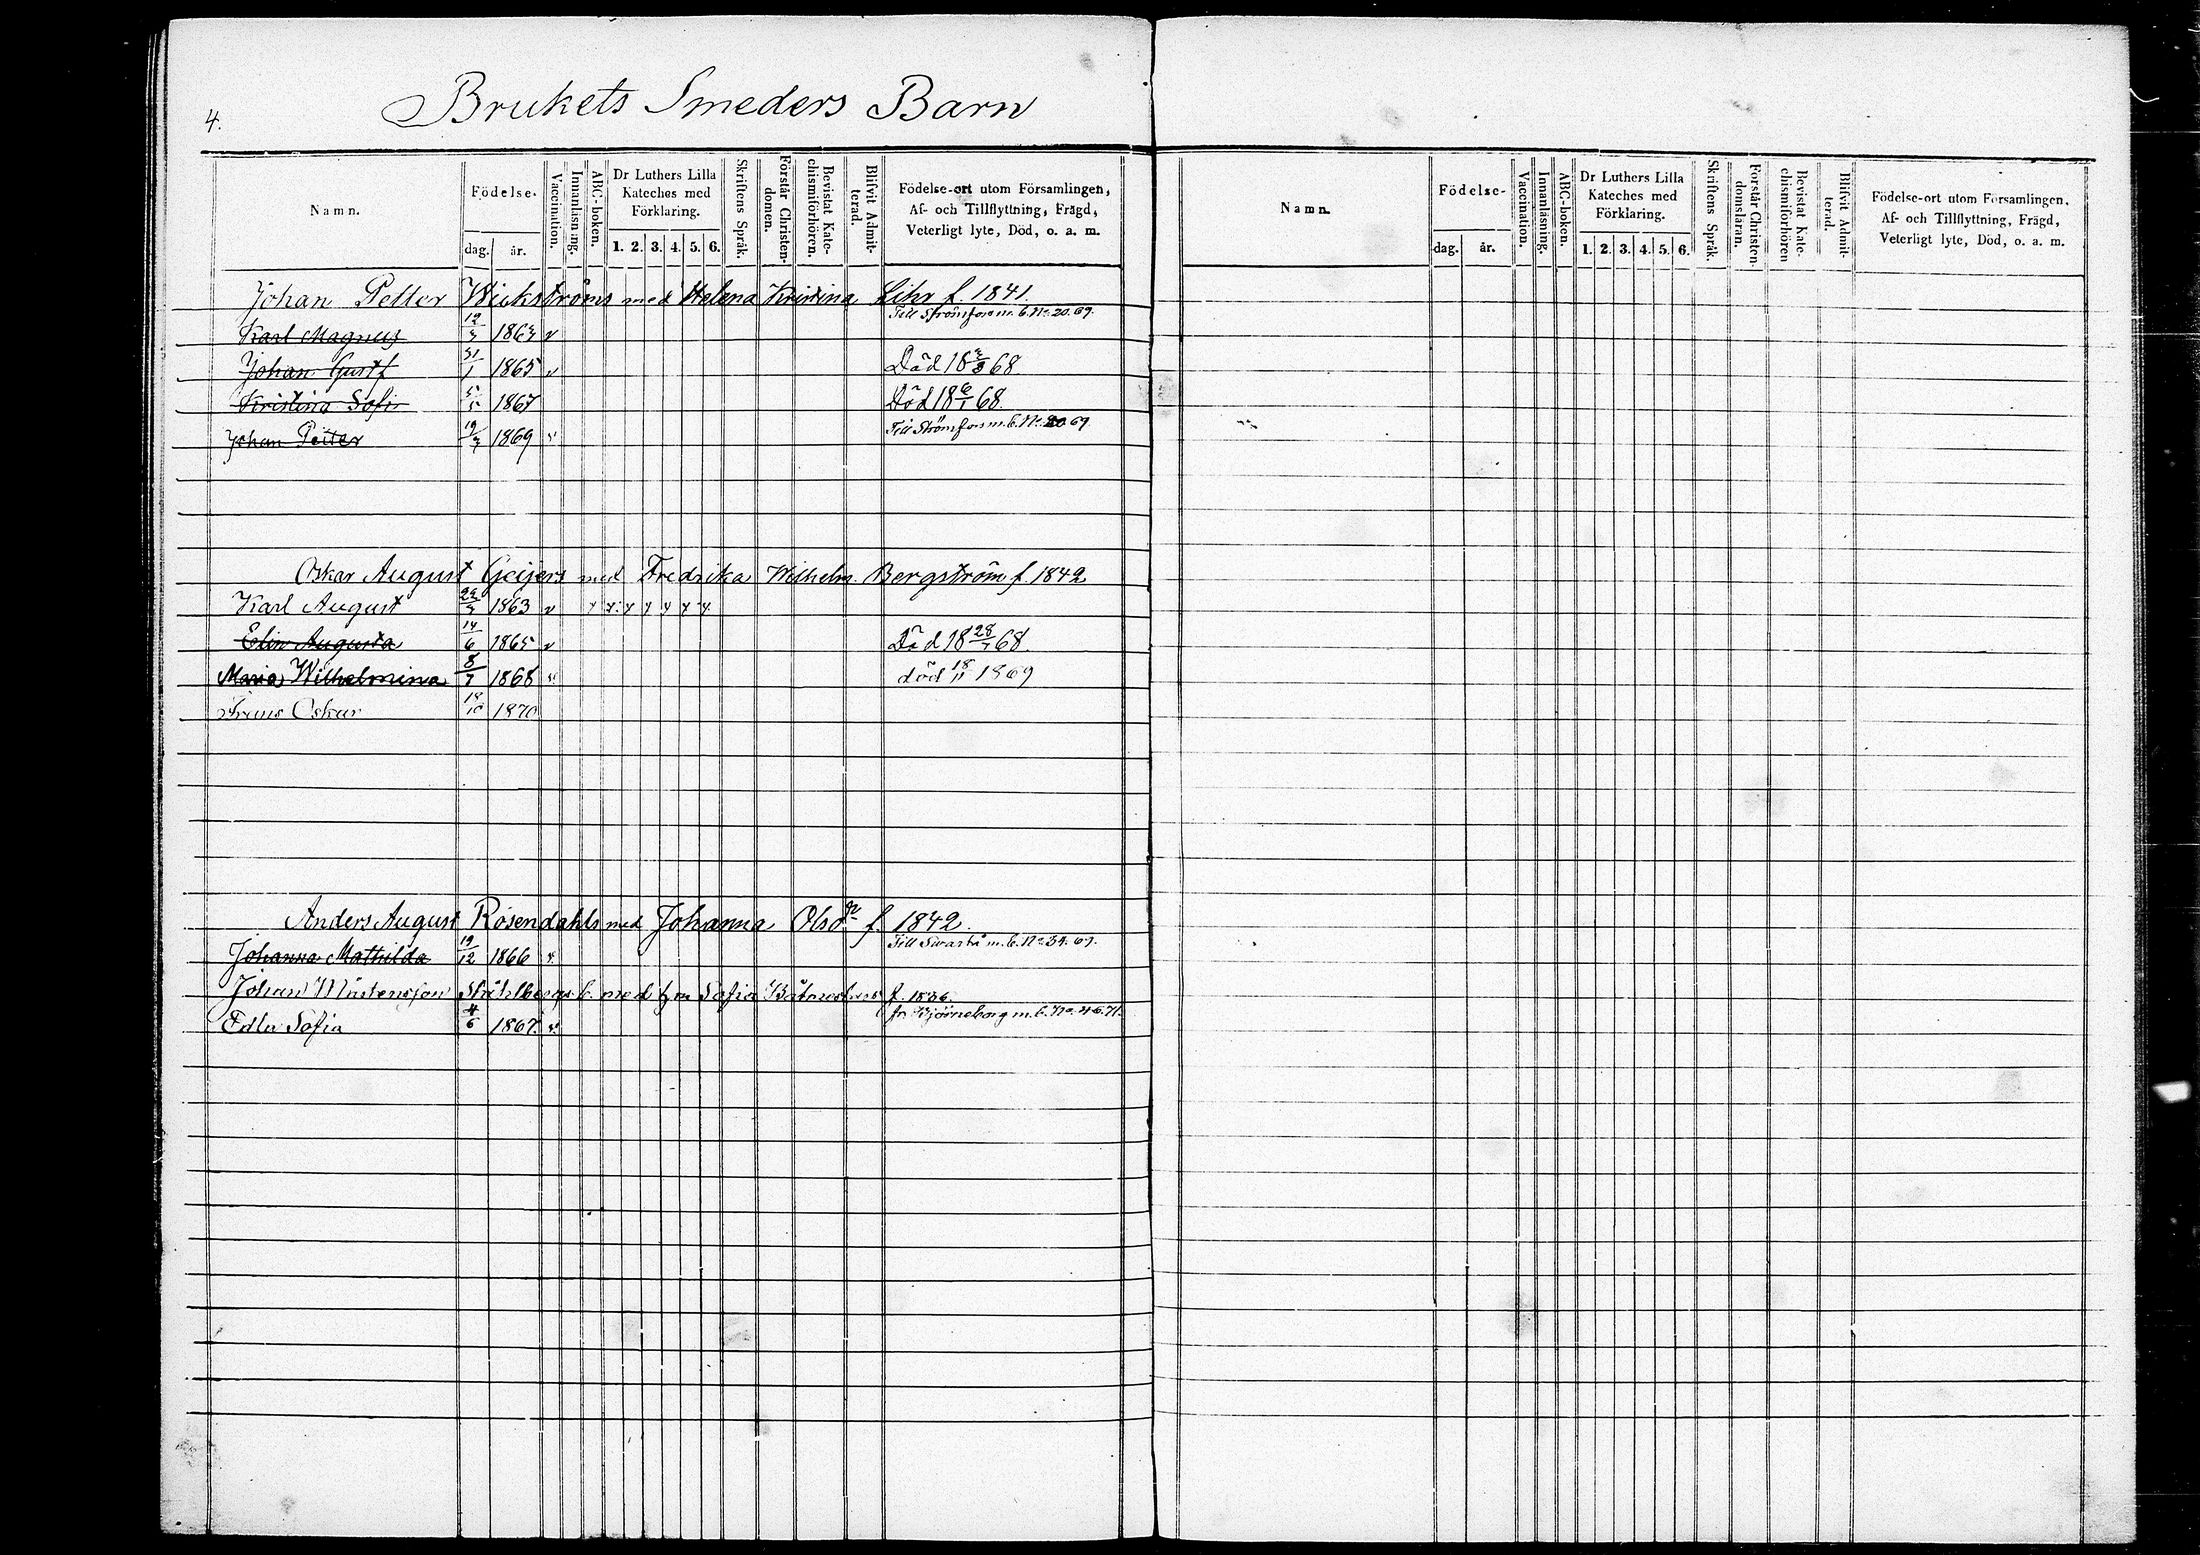 4.
Brukets Smeders Barn
Namn.
Födelse-
dag.
år.
Vaccination.
Innanläsning.
ABC-boken.
Dr Luthers Lilla
Kateches med
Förklaring.
1. 2. 3. 4. 5. 6.
Skriftens Språk.
Förstår Christen-
domen.
Bevistat Kate-
chismiförhören.
Blifvit Admit-
terad.
Födelse-ort utom Församlingen,
Af- och Tillflyttning, Frägd,
Veterligt lyte, Död, o. a. m.
Johan Petter Wickströms med Helena Kristina Lihr f. 1841.
Karl Magnus 1863 Till Strömfors m. b. No. 20. 69.
Johan Gustf 31/1 1865 Död 18 68
Kristina Sofi 5/5 1867 Död 18 6/1 68.
Johan Petter 1869 Till Strömfors m. b. No. 20. 69
Oskar August Geijers med Fredrika Wilhelm. Bergström f. 1842
Karl August 1863
Elin Augusta 14/6 1865 Död 18 68.
Maria Wilhelmina 8/7 1868 död 18/11 1869
Frans Oskar 1870
Anders August Rosendahls med Johanna Olsdr f. 1842.
Johanna Mathilda 19/12 1866 Till m. b. No 34. 69.
Johan Mårtensson Ståhlbergs b. med Sofia f. 1836.
Edla Sofia 4/6 1867. fr. Björneborg m. b. No. 46. 71.
Namn.
Födelse-
dag.
år.
Vaccination.
Innanläsning.
ABC-boken.
Dr Luthers Lilla
Kateches med
Förklaring.
1. 2. 3. 4. 5. 6.
Skriftens Språk.
Förstår Christen-
domsläran.
Bevistat Kate-
chismiförhören
Blifvit Admit-
terad.
Födelse-ort utom Församlingen,
Af- och Tillflyttning, Frägd,
Veterligt lyte, Död, o. a. m.